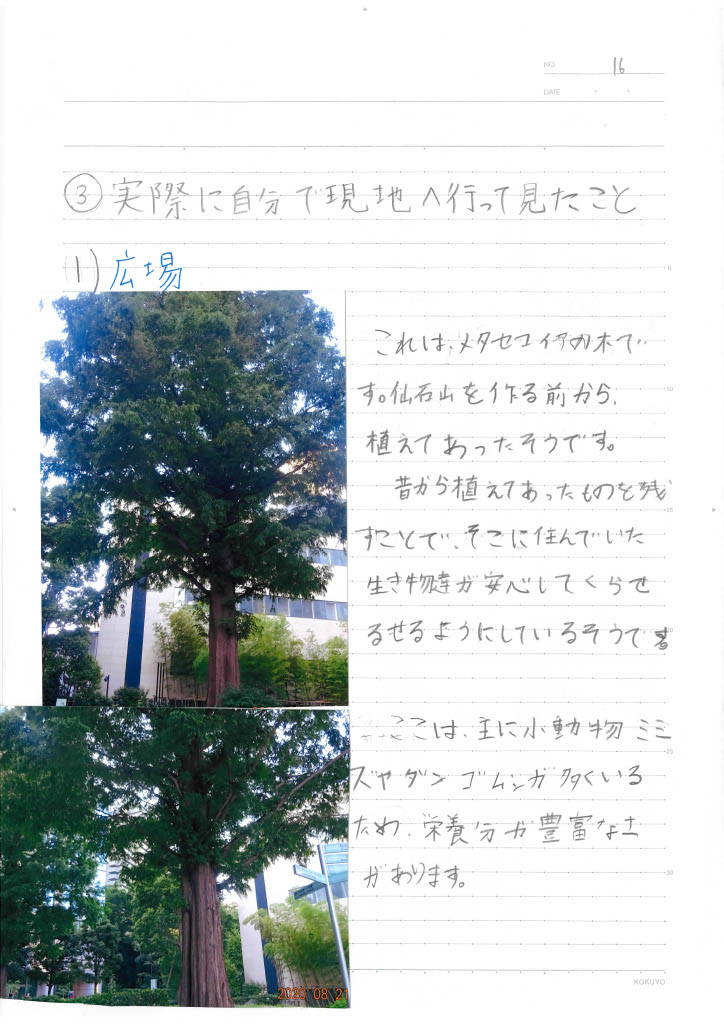 NO. 16
DATE
③実際に自分で現地へ行って見たこと
(1)広場
これは、メタセコイアの木で
す。仙石山を作る前から、
植えてあったそうです。
昔から植えてあったものを残
すことで、そこに住んでいた
生き物達が安心してくらせ
るせるようにしているそうです
ここは、主に小動物ミミ
ズやダンゴムシが多くいる
ため、栄養分が豊富な土
があります。
5
10
15
25
30
2020 08 21
KOKUYO